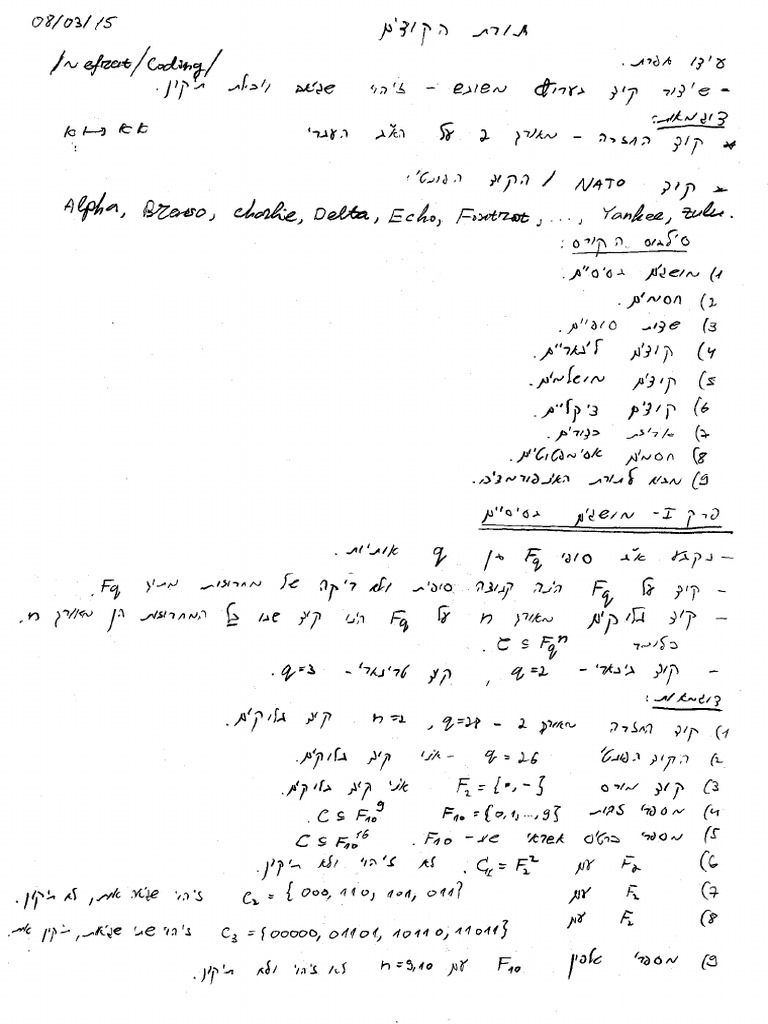 08/03/15
תורת הקודים
עידו אפרת.
/~efrat/Coding/
- שידור קוד בערוץ משובש - זיהוי שגיאה ויכולת תיקון.
דוגמאות:
* קוד החזרה - מאורך 2 על הא"ב העברי א ↦ א א
* קוד NATO / הקוד הפונטי:
Alpha, Bravo, Charlie, Delta, Echo, Foxtrot, ..., Yankee, Zulu.
סילבוס הקורס:
1) מושגים בסיסיים.
2) חסמים.
3) שדות סופיים.
4) קודים לינאריים.
5) קודים מושלמים.
6) קודים ציקליים.
7) אריזת כדורים.
8) חסמים אסימפטוטיים.
9) מבוא לתורת האינפורמציה.
פרק I - מושגים בסיסיים
- נקבע א"ב סופי F_q בן q אותיות.
- קוד על F_q הינה קבוצה סופית ולא ריקה של מחרוזות מתוך F_q.
- קוד בלוקים מאורך n על F_q הינו קוד שבו כל המחרוזות הן מאורך n.
כלומר C ⊆ F_q^n.
- קוד בינארי - q=2, קוד טרינארי - q=3.
דוגמאות:
1) קוד החזרה מאורך 2 - q=28, n=2 קוד בלוקים.
2) הקוד הפונטי q=26 - אינו קוד בלוקים.
3) קוד מורס F_2={·,-} אינו קוד בלוקים.
4) מספרי זהות F_10={0,1,...,9} C ⊆ F_10^9
5) מספרי כרטיס אשראי מעל F_10 - C ⊆ F_10^16
6) F_2 עם C_1=F_2^2. לא זיהוי ולא תיקון.
7) F_2 עם C_2={000,110,101,011} זיהוי שגיאה אחת, לא תיקון.
8) F_2 עם C_3={00000,01101,10110,11011} זיהוי שתי שגיאות, תיקון אחת.
9) מספרי טלפון F_10 עם n=9,10 לא זיהוי ולא תיקון.